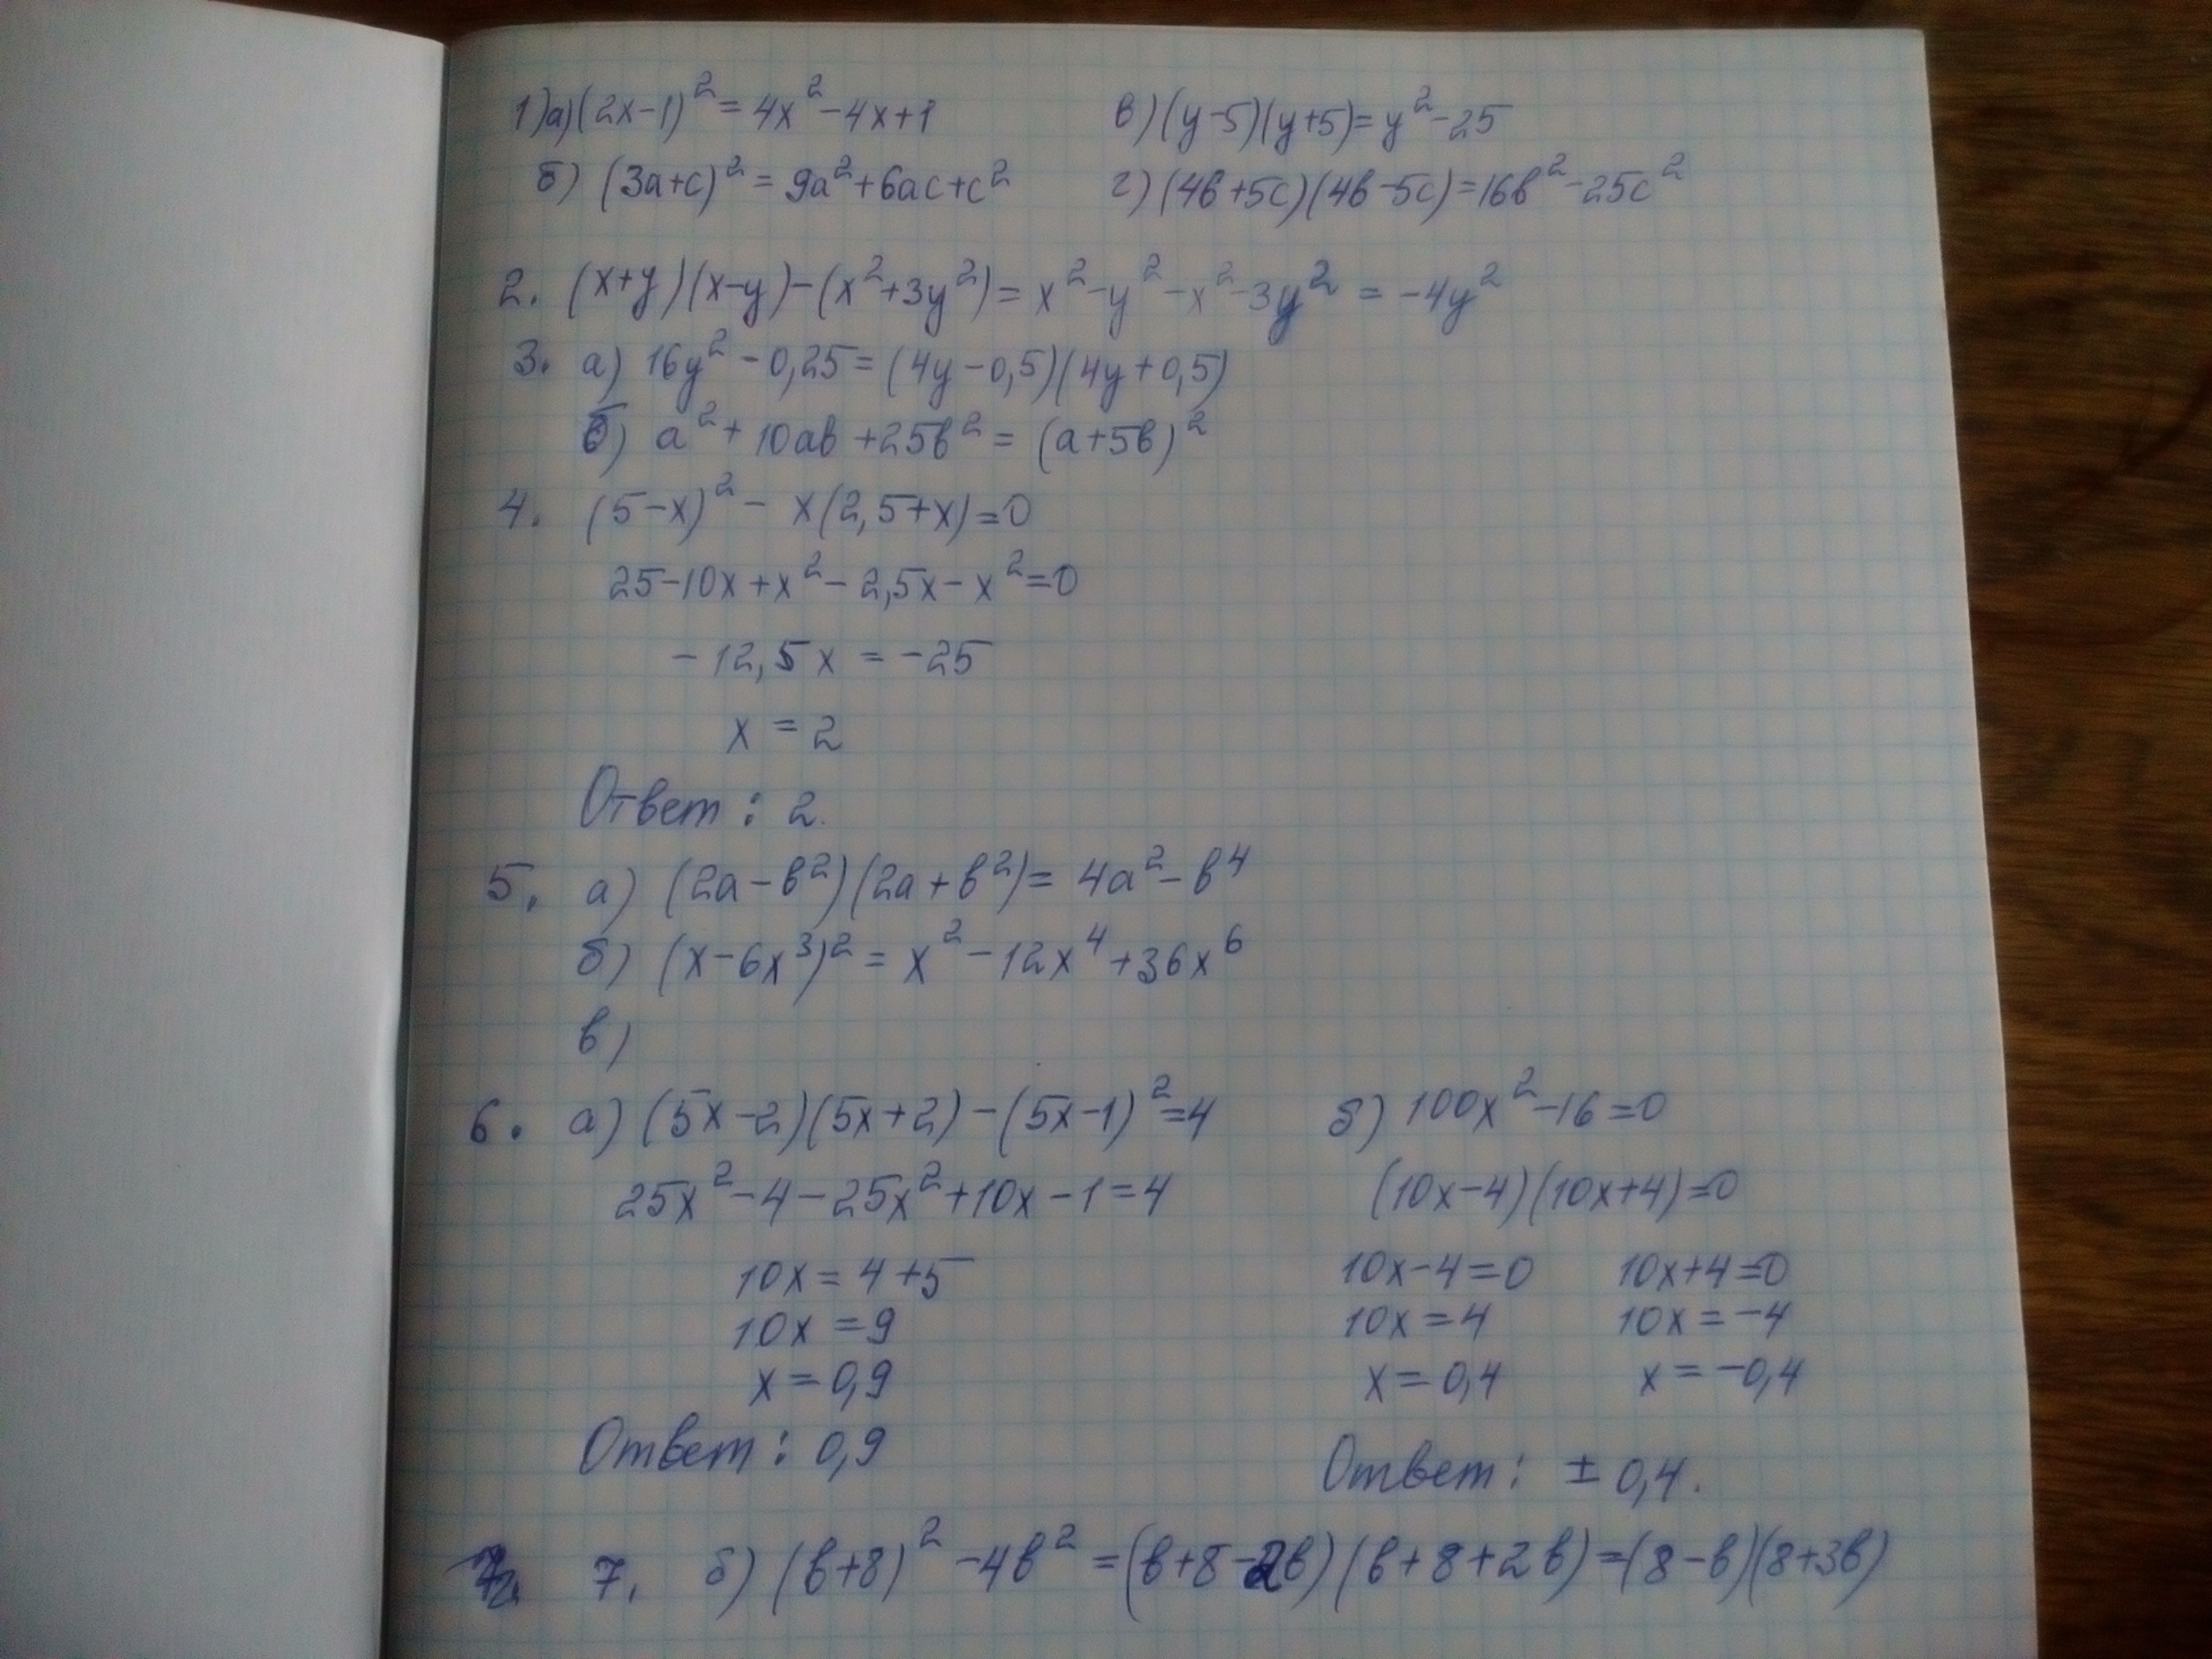 1) а) (2x-1)² = 4x² - 4x + 1
б) (3a+c)² = 9a² + 6ac + c²
в) (y-5)(y+5) = y² - 25
г) (4b+5c)(4b-5c) = 16b² - 25c²
2. (x+y)(x-y) - (x²+3y²) = x² - y² - x² - 3y² = -4y²
3. а) 16y² - 0,25 = (4y-0,5)(4y+0,5)
б) a² + 10ab + 25b² = (a+5b)²
4. (5-x)² - x(2,5+x) = 0
25 - 10x + x² - 2,5x - x² = 0
-12,5x = -25
x = 2
Ответ: 2.
5. а) (2a-b²)(2a+b²) = 4a² - b⁴
б) (x-6x³)² = x² - 12x⁴ + 36x⁶
в)
6. а) (5x-2)(5x+2) - (5x-1)² = 4
25x² - 4 - 25x² + 10x - 1 = 4
10x = 4+5
10x = 9
x = 0,9
Ответ: 0,9
б) 100x² - 16 = 0
(10x-4)(10x+4) = 0
10x-4=0 10x+4=0
10x=4 10x=-4
x=0,4 x=-0,4
Ответ: ± 0,4.
7. б) (b+8)² - 4b² = (b+8-2b)(b+8+2b) = (8-b)(8+3b)